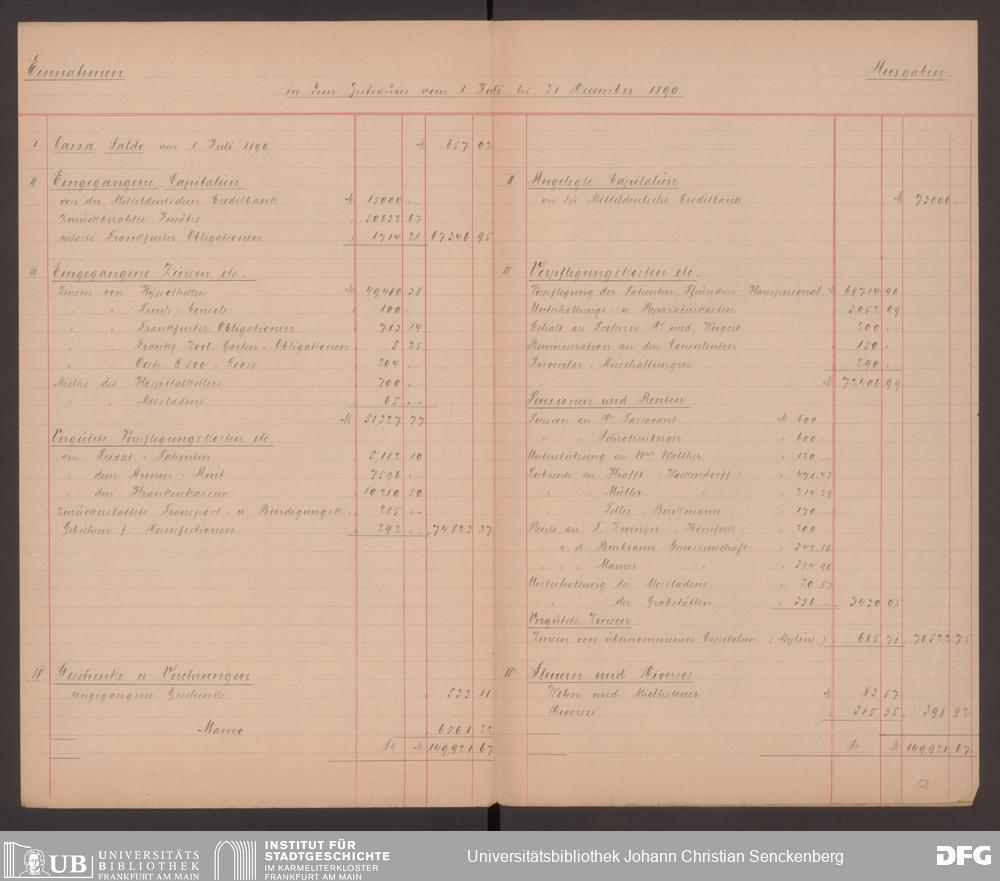 Einnahmen
Ausgaben
in dem Zeitraum vom 1 Juli bis 31 December 1890
I Cassa Saldo am 1 Juli 1890 M 657 02
II Eingegangene Capitalien
von der Mitteldeutschen Creditbank M 15000 —
zurückbezahlte Insätze 50632 67
verloste Frankfurter Obligationen 1714 28 67346 95
III Eingegangene Zinsen etc.
Zinsen von Hypotheken M 49,480 38
" " Preuss. Consols 100 —
" " Frankfurter Obligationen 713 14
" " Frankf. Zool. Garten-Obligationen 5 25
" " Oestr. fl 500 - Loose 264 —
Miethe des Hospitalkellers 700 —
" " Messladens 65 —
M 51,327 77
Vergütete Verpflegungskosten etc
von Privat-Patienten 5,112 10
" dem Armen-Amt 7596 —
" den Krankenkassen 10,210 50
zurückerstattete Transport- u. Beerdigungsk. 285 —
Gebühren f. Desinfectionen 292 — 74,823 37
IV Geschenke u Verehrungen
eingegangene Geschenke 533 11
Manco 6561 22
M 149,921 67
II Angelegte Capitalien
an die Mitteldeutsche Creditbank M 73000 —
III Verpflegungskosten etc.
Verpflegung der Patienten, Pfründner, Hauspersonal M 68714 90
Unterhaltungs- u. Reparaturkosten 3052 09
Gehalt an Professor Dr med. Weigert 200 —
Remuneration an den Consulenten 150 —
Inventar-Anschaffungen 290 —
M 72406 99
Pensionen und Renten
Pension an Dr Passavant M 600
" " Schrotzenberger " 600 —
Unterstützung an Wwe Walther " 120 —
Leibrente an Krafft (Wackendorff) " 471.43
" " Müller " " 214 29
" " Feller (Beeckmann) " 170 —
Rente an F. Zwenger (Homfeck) " 200
" a. d. Bierbrauer Genossenschaft " 342.86
" " " Maurer " " 354 90
Unterhaltung des Messladens " 20 57
" der Grabstätten " 336.— 3430 05
Vergütete Zinsen
Zinsen von übernommenen Capitalien (Mylius) 685 71 76522 75
IV Steuern und Diverses
Wohn und Miethsteuer M 83 57
Diverses 315 35 398 92
M 149,921 67
58
UB UNIVERSITÄTS
BIBLIOTHEK
FRANKFURT AM MAIN
INSTITUT FÜR
STADTGESCHICHTE
IM KARMELITERKLOSTER
FRANKFURT AM MAIN
Universitätsbibliothek Johann Christian Senckenberg
DFG